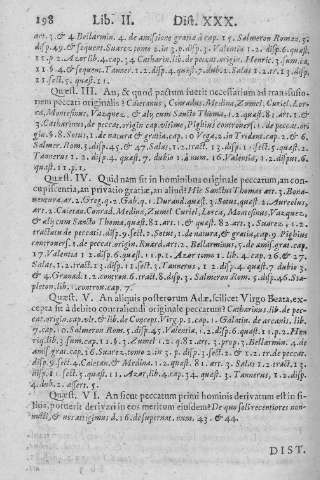 198 Lib. II. Dist. XXX.
art. 3. & 4 Bellarmin. 4. de amissione gratiæ à cap. 15. Salmeron Romæ 5.
disp. 49. & sequent. Suarez. tomo 2. in 3. p. disp. 3. Valentia 1. 2. disp. 6. quæst.
11. p. 2. Azor lib. 4. cap. 34 Catharin. lib. de peccat. origin. Henric. 3. sum. ca.
11 § 4 & sequent. Tanner. 1. 2. disp. 4. quæst. 7. dub. 2. Salas 1. 2. tr. 13. disp.
11. sect. 5.
Quæst. III. An, & quod pactum fuerit necessarium ad transfusio-
nem peccati originalis? Caietanus, Conradus, Medina, Zumel. Curiel. Lor-
ca, Montesinus, Vazquez, & alij cum Sancto Thoma, 1. 2. quæst. 81. art. 1. &
3. Catharinus, de peccat. origin. capit. ultimo, Pighius controvers. 1. de peccat. ori-
gin. § 8. Sotus, 1. de natura & gratia, cap. 10 Vega, 2. in Trident. cap. 2. & 6.
Salmer. Rom. 3. disp. 45. & 47. Salas, 1. 2. tract. 13. disp. 11. sect. 5. quæst. 2.
Tannerus 1. 2. disp. 4. quæst. 7. dubio 1. à num. 16. Valentia, 1. 2. disput. 6.
quæst. 11. p. 1.
Quæst. IV. Quid nam sit in hominibus originale peccatum, an con-
cupiscentia, an privatio gratiæ, an aliud? Hic Sanctus Thomas art. 3. Bona-
mentura. ar. 2. Greg. q. 2. Gab. q. 1. Durand. quæst. 3. Scotus quæst. 2. Aureolus,
art. 2. Caietan. Conrad. Medina, Zumel Curiel, Lorca, Montesinus, Vazquez,
& alij cum Sancto Thoma, 1. 2. quæst. 81. art. 1. quæst. 82. art. 3. Suarez, 1. 2.
tractatu de peccatis. disp. 9. sect. 2. Sotus, 1. de natura, & gratia, cap. 9. Pighius
controvers. 1. de peccat. origin. Ruard. art. 2. Bellarminus, 5. de amis. grat. cap.
17. Valentia 1 2. disp. 6. quæst. 11. p. 1. Azor tomo 1. lib. 4. cap. 26. & 27.
Salas, 1. 2. tract. 13. disp. 11. sect. 1. Tannerus, 1 2. disp. 4. quæst. 7 dubio 3,
& 4. Granad. 1. 2. contra. 6. tract. 8. disp. 3. Salmeron Rom. 5. disp. 46. Sta-
pleton. lib. 1. contron. cap. 7.
Quæst. V. An aliquis posterorum Adæ, scilicet Virgo Beata, ex-
cepta sit à debito contrahendi originale peccatum? Catharinus lib. de pec-
cat. origin. cap. vlt. & lib. de Concept. Virg. p. 1. cap. 1. Galatin. de arcanis, lib.
7. cap. 10 Salmeron Rom. 5. disp. 45. Valentia, 1. 2. disp. 6. quæst. 11. p. 2. Hen
riq. lib. 3. sum. cap. 12. § 3. Zumel 1. 2. q. 81. art. 3. prop. 5. Bellarmin. 4. de
amis. grat. cap. 16. Suarez tomo 2. in 3. p. disp. 3. sect. 2. & 1. 2. tr. de peccat.
disp. 9. sect. 4. Caietan. & Medina. 1. 2. quæst. 81. art. 3. Salas 1. 2. tract. 13.
disp. 11. sect. 5. quæst. 11. Azor, lib. 4. cap. 34. quæst. 3. Tannerus, 1. 2. disp.
4. dub. 2. assert. 5.
Quæst. VI. An sicut peccatum primi hominis derivatum est in fi-
lios, potuerit derivari in eos meritum eiusdem? De quo soli recentiores non-
nulli, & nos attigimus d. 16. desupernat. num. 43. & 44.
DIST.